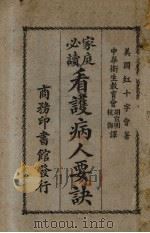 美國紅十字會著
中華衛生教育會
胡宣明
杭海
譯
家庭
必讀
看護病人要訣
商務印書館發行